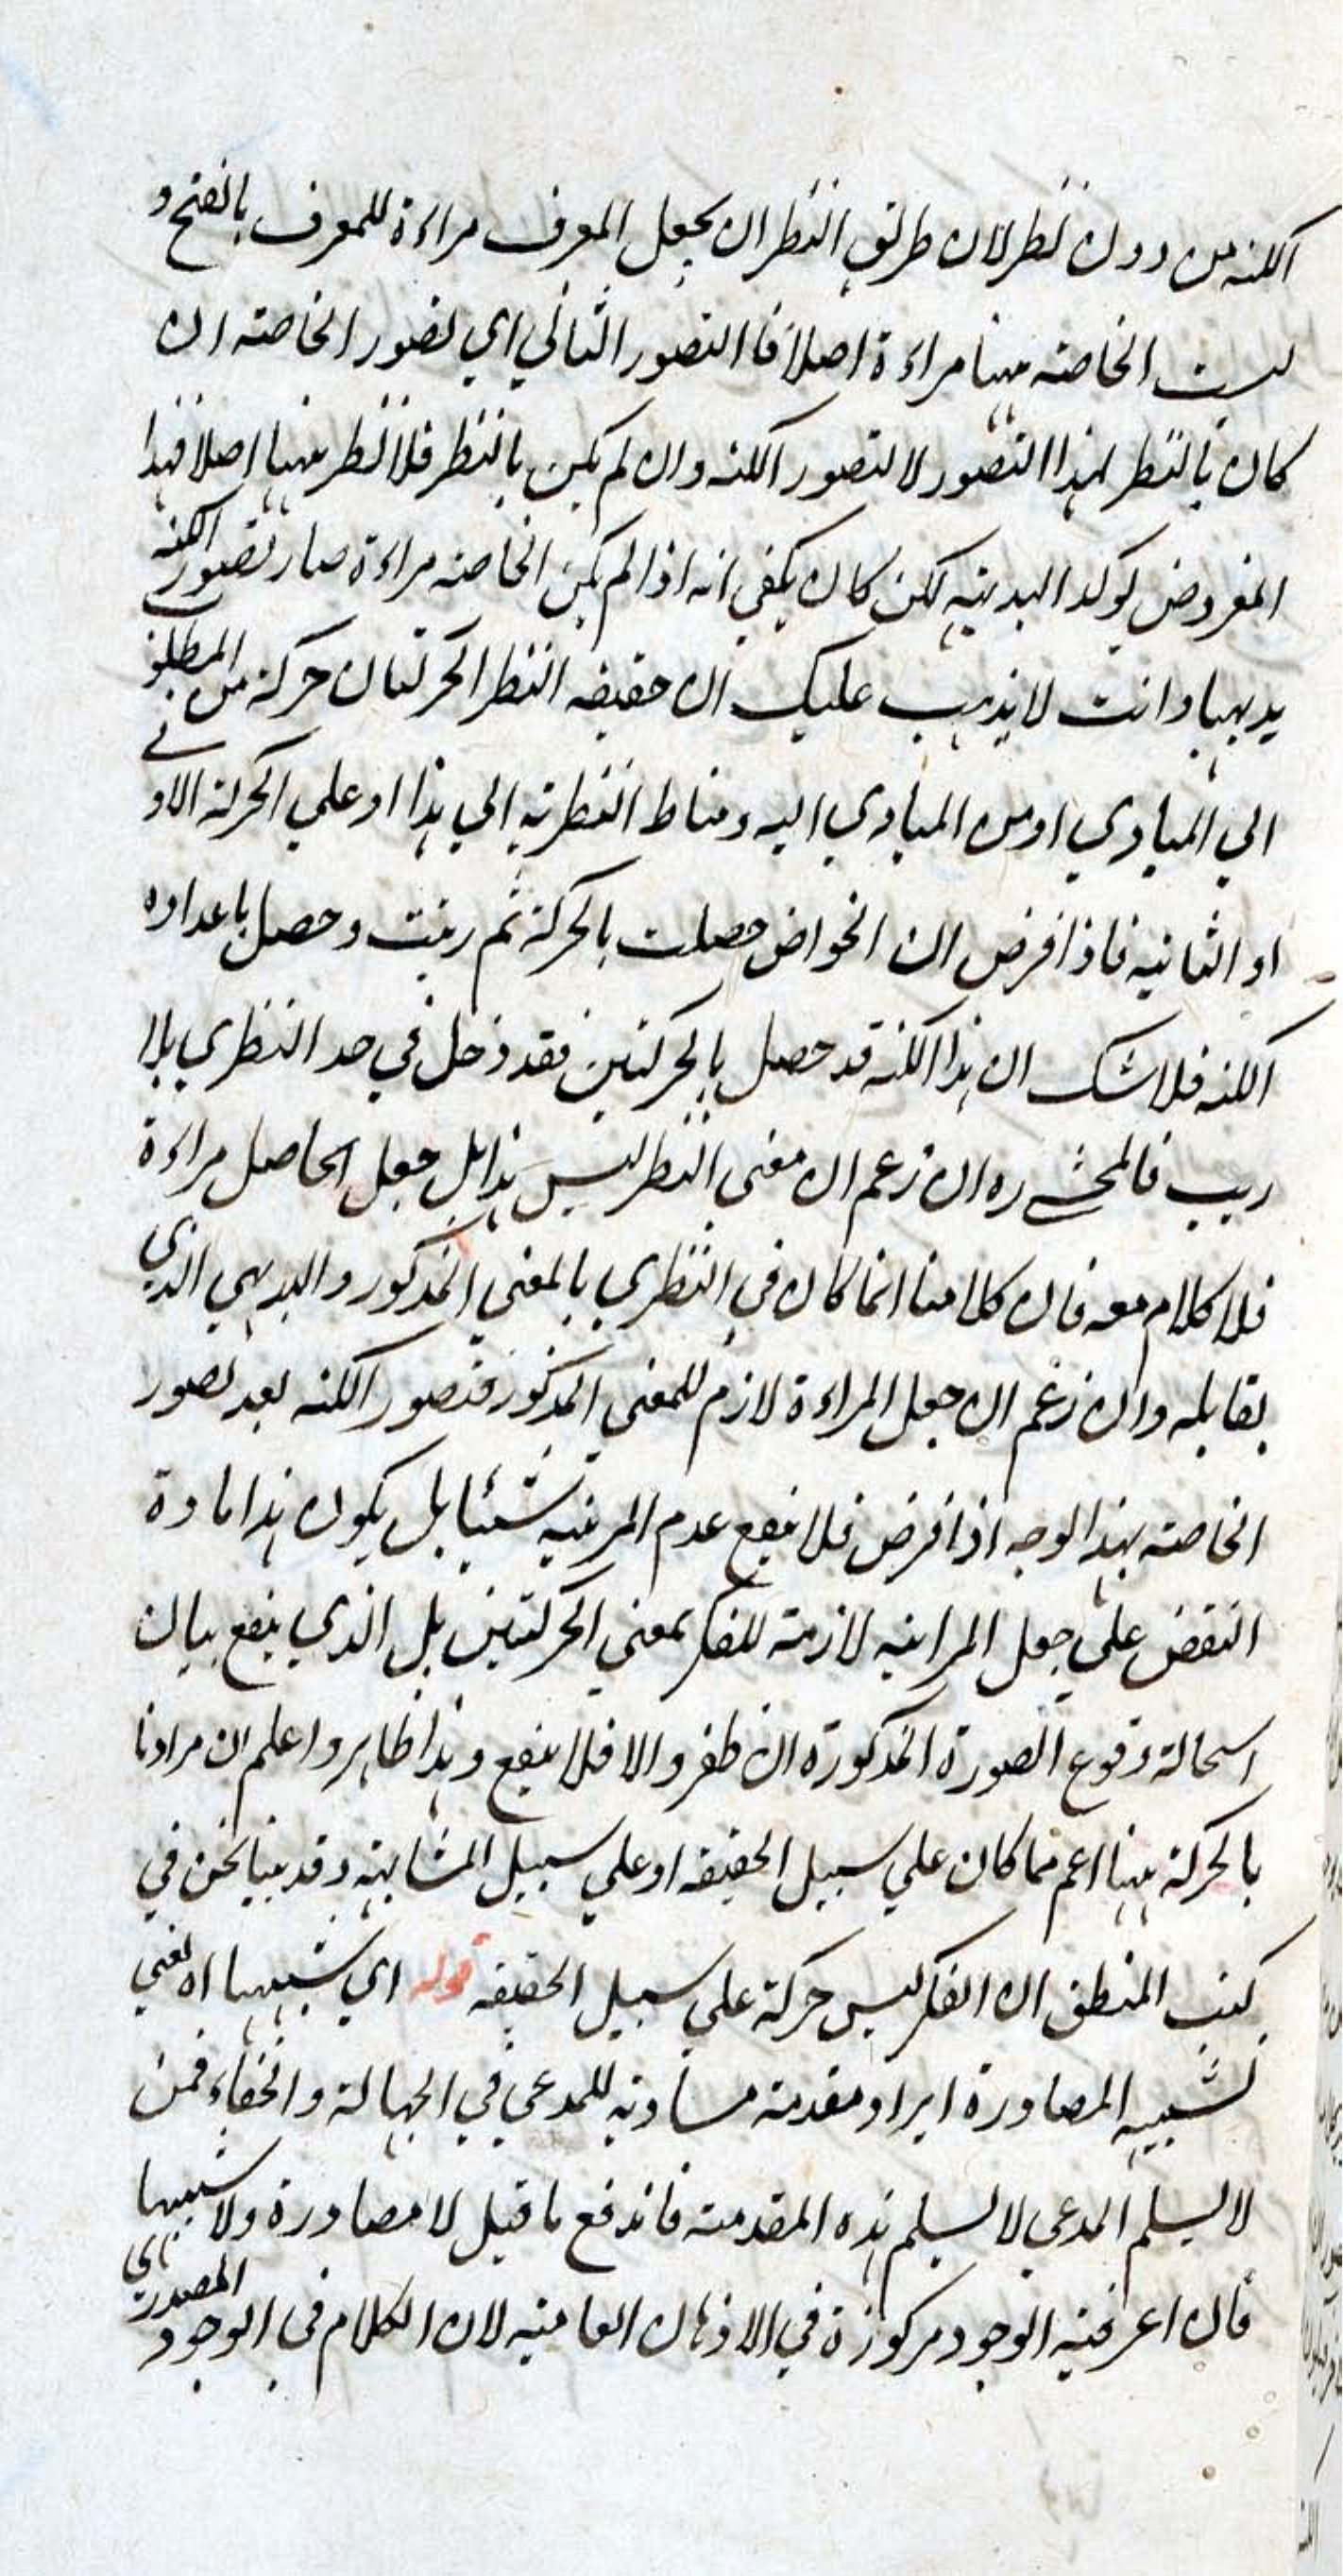 الكنه من دون نظر لان طريق النظر ان يجعل المعرف مراءة للمعرف بالفتح و
ليست الخاصة ههنا مراءة اصلا فالتصور الثاني اي تصور الخاصة ان
كان بالنظر لهذا التصور لا لتصور الكنه وان لم يكن بالنظر فلا نظر ههنا اصلا فهذا
المفروض يوكد البديهية لكن كان يكفي انه اذا لم يكن الخاصة مراءة صار تصور الكنه
بديهيا وانت لا يذهب عليك ان حقيقة النظر الحركتان حركة من المطلوب
الي المبادي او من المبادي اليه ومناط النظرية الي هذا او علي الحركة الاولي
او الثانية فاذا فرض ان الخواص حصلت بالحركة ثم رتبت وحصل باعداده
الكنه فلا شك ان هذا الكنه قد حصل بالحركتين فقد دخل في حد النظري بلا
ريب فالمحشي ره ان زعم ان معنى النظر ليس هذا بل جعل الحاصل مراءة
فلا كلام معه فان كلامنا انما كان في النظري بالمعني المذكور والبديهي الذي
يقابله وان زعم ان جعل المراءة لازم للمعني المذكور فتصور الكنه بعد تصور
الخاصة بهذا الوجه اذا فرض فلا ينفع عدم المرئية شيئا بل يكون هذا مادة
النقض علي جعل المرائية لازمة للفكر بمعني الحركتين بل الذي ينفع بيان
استحالة وقوع الصورة المذكورة ان ظفر والا فلا ينفع وهذا ظاهر واعلم ان مرادنا
بالحركة ههنا اعم مما كان علي سبيل الحقيقة او علي سبيل المشابهة وقد بينا نحن في
كتب المنطق ان الفكر ليس حركة علي سبيل الحقيقة قوله اي شبيهها اه يعني
شبيه المصادرة ايراد مقدمة مساوية للمدعي في الجهالة والخفاء فمن
لا يسلم المدعي لا يسلم هذه المقدمة فاندفع ما قيل لا مصادرة ولا شبيهها
فان اعرفية الوجود مركوزة في الاذهان العامية لان الكلام في الوجود المصدري